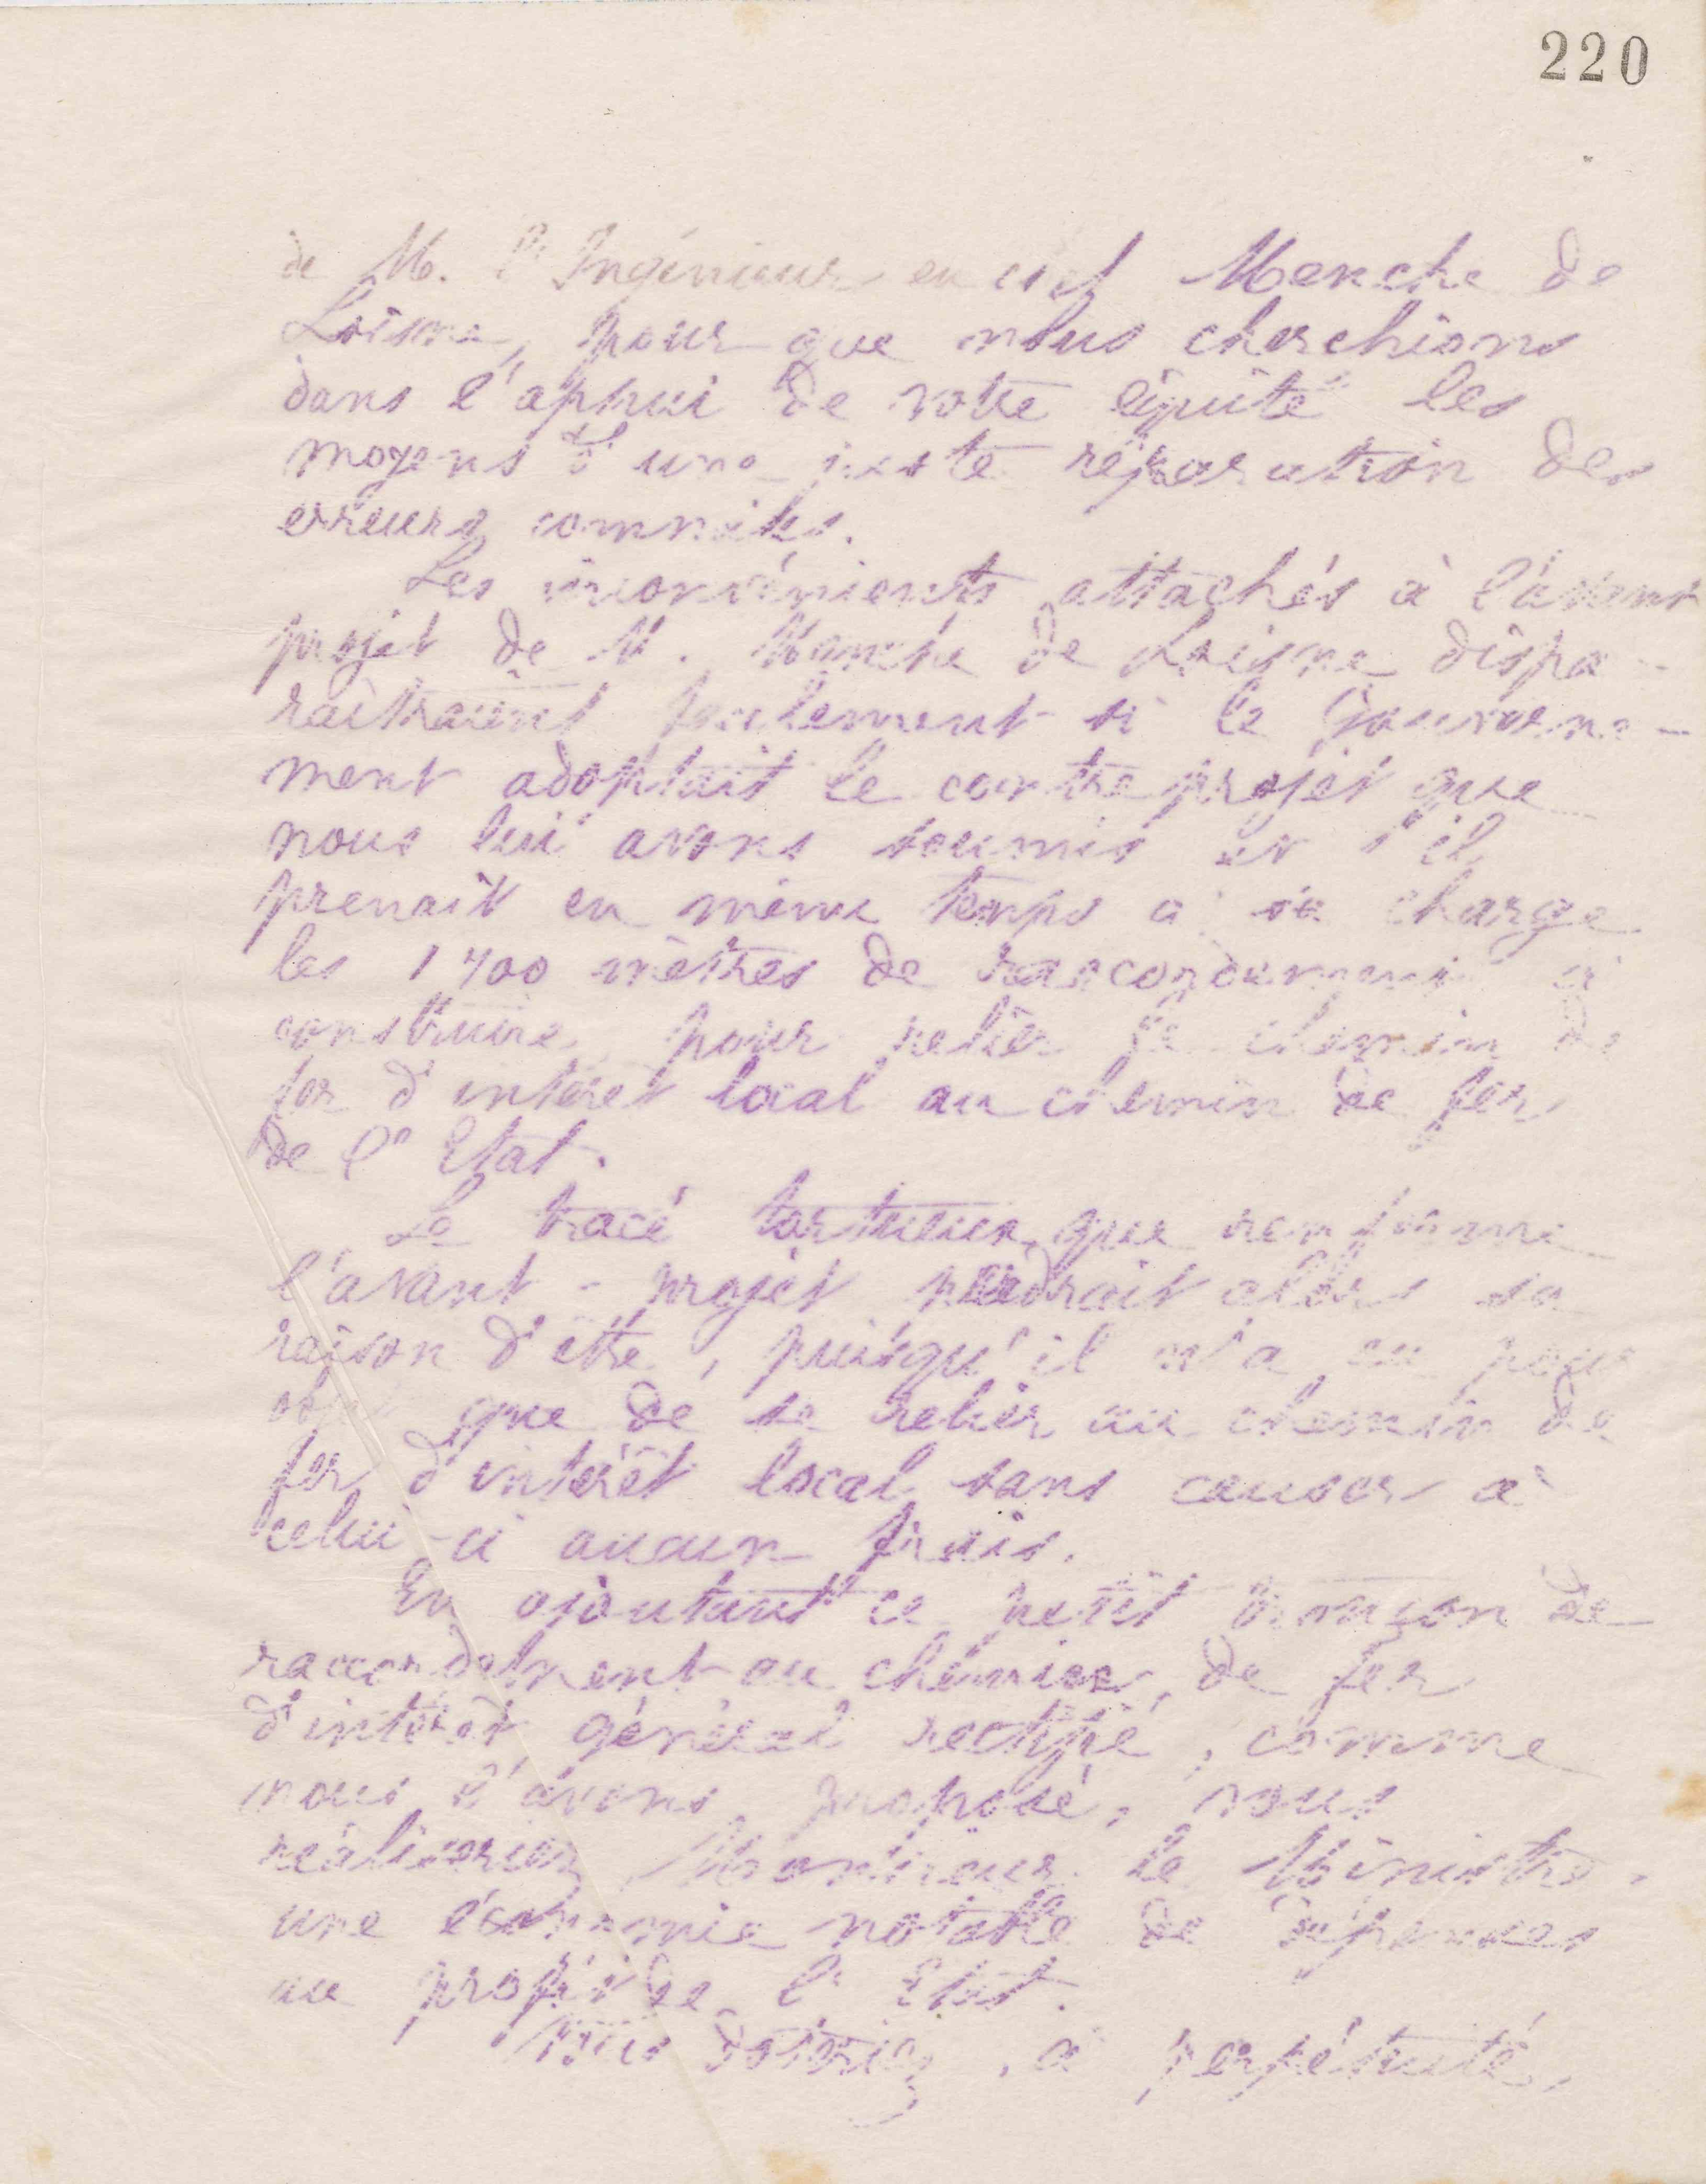 220
de M. l'Ingénieur en chef Menche de
Loisne, pour que nous cherchions
dans l'appui de votre équité les
moyens d'une juste réparation des
erreurs commises.
Les inconvénients attachés à l'avant
projet de M. Menche de Loisne dispa-
raîtraient facilement si le Gouverne-
ment adoptait le contre projet que
nous lui avons soumis et s'il
prenait en même temps à sa charge
les 1700 mètres de raccordement à
construire pour relier le chemin de
fer d'intérêt local au chemin de fer
de l'Etat.
Le tracé tortueux que renferme
l'avant-projet perdrait alors sa
raison d'être, puisqu'il n'a eu pour
obj que de se relier au chemin de
fer d'intérêt local sans causer à
celui-ci aucun frais.
En ajoutant ce petit tronçon de
raccordement au chemin de fer
d'intérêt général rectifié, comme
nous l'avons proposé, vous
réaliseriez, Monsieur le Ministre,
une économie notable de dépenses
au profit de l'Etat.
Vous doteriez, à perpétuité,